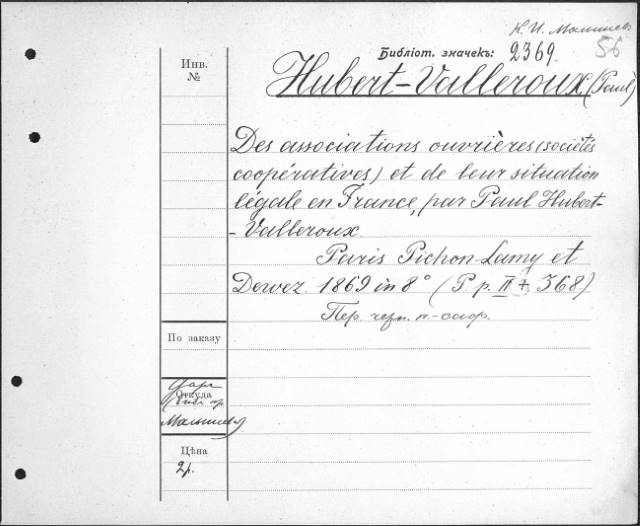 К. И. Малышев
56
Библіот. значекъ: 2369.
Инв. №
Hubert-Valleroux (Paul)
Des associations ouvrières (sociétés
coopératives) et de leur situation
légale en France, par Paul Hubert-
- Valleroux.
Paris Pichon-Lamy et
Dewez 1869 in 8° (P. p. II + 368)
Пер. черн. п.-
По заказу
Откуда
Малышев
Цѣна
2 р.